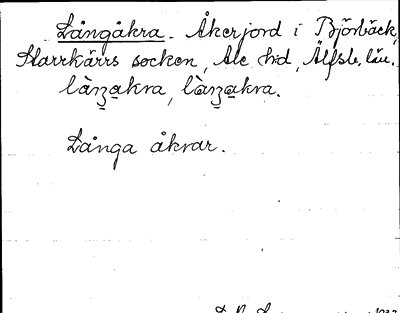 Långåkra. Åkerjord i Björbäck,
Starrkärrs socken, Ale hd, Älfsb. län.
làŋɜa̱kra, làŋɜa̱kra.
Långa åkrar.